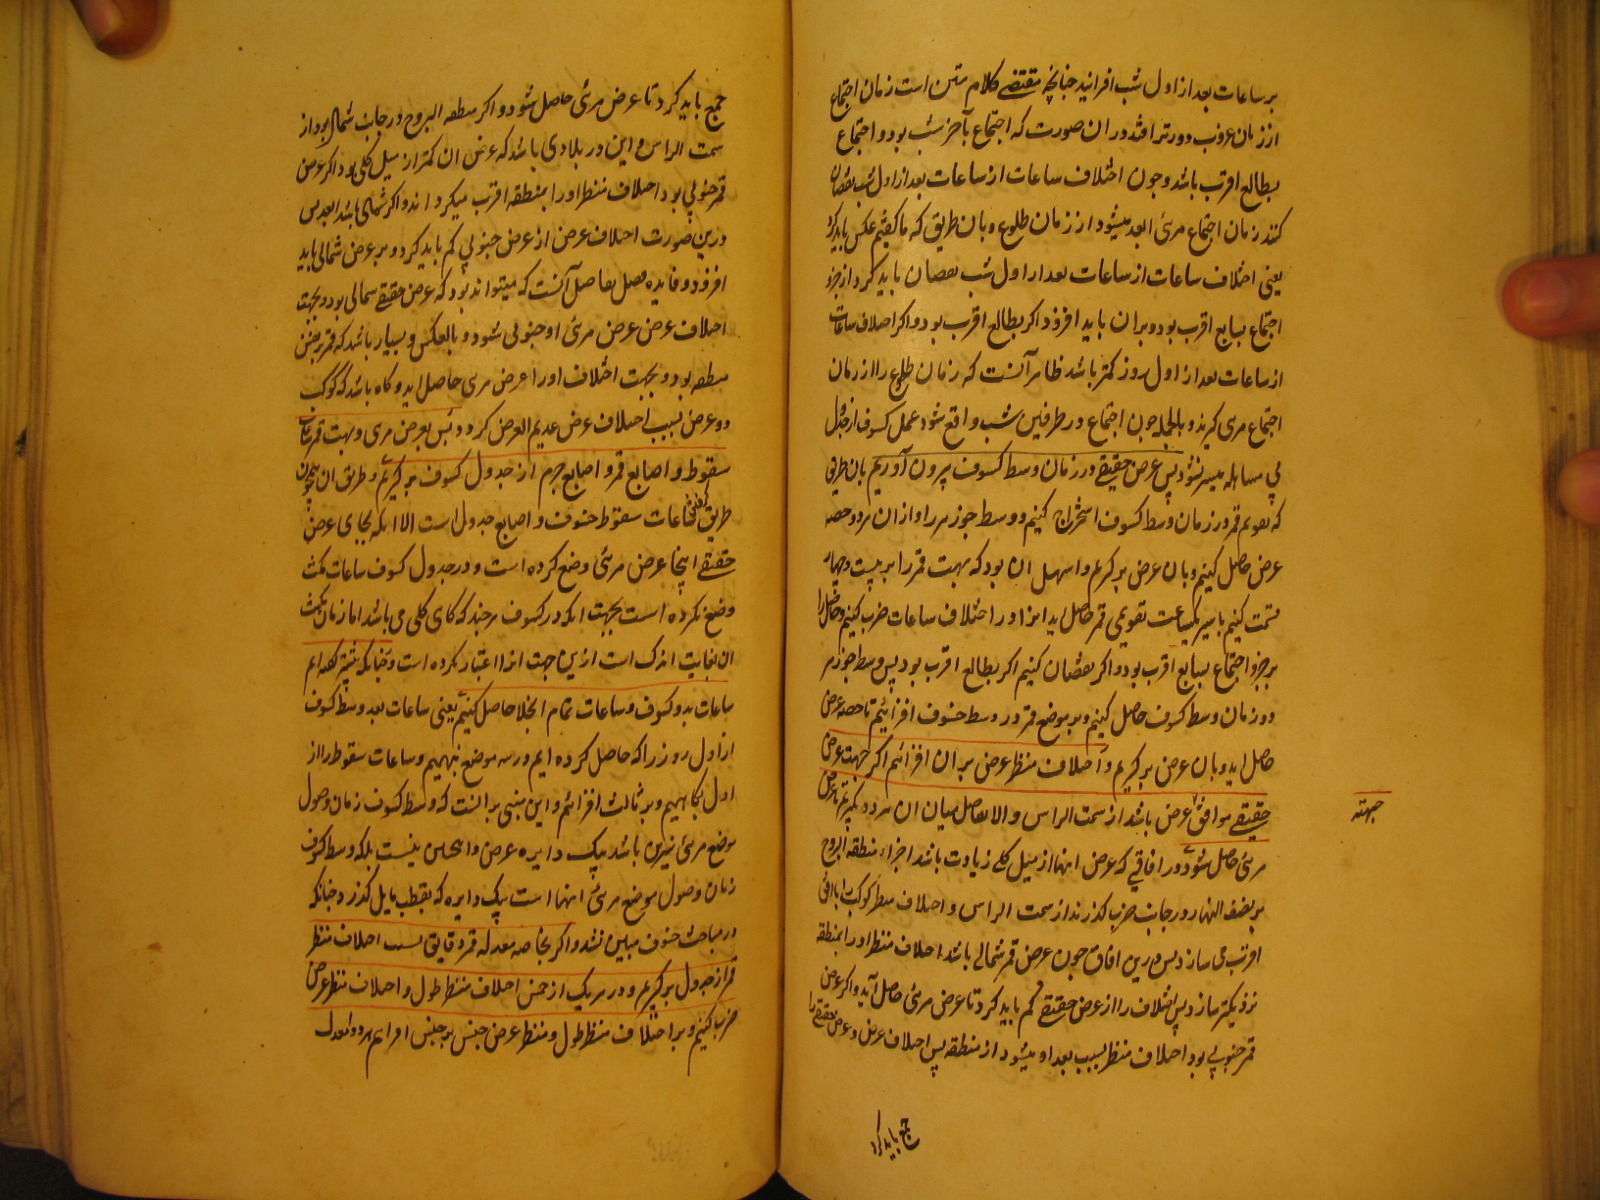 بر ساعات بعد از اول شب افزایند چنانچه مقتضی کلام متن است زمان اجتماع
از زمان غروب دورتر افتد در ان صورت که اجتماع بآخر شب بود و اجتماع
بطالع اقرب باشد و چون اختلاف ساعات از ساعات بعد از اول شب نقصان
کنند زمان اجتماع مرئی ابعد میشود از زمان طلوع و بان طریق که ما گفتیم عکس باید کرد
یعنی اختلاف ساعات از ساعات بعد از اول شب نقصان باید کرد از جزو
اجتماع بسابع اقرب بود و بران باید افزود اکر بطالع اقرب بود و اکر اختلاف ساعات
از ساعات بعد از اول روز کمتر باشد ظاهر آنست که زمان طلوع را از زمان
اجتماع مرئی کیرند و بالجمله چون اجتماع در طرفین شب واقع شود عمل کسوف از جدول
بی مساهله میسر نشود پس عرض حقیقی در زمان وسط کسوف بیرون آوریم بان طریق
که تقویم قمر در زمان وسط کسوف استخراج کنیم و وسط جوزهر را و از ان هر دو حصه
عرض حاصل کنیم و بان عرض برکیریم و اسهل ان بود که بهت قمر را بر بیست و چهار
قسمت کنیم تا سیر یکساعت تقویمی قمر حاصل اید انرا در اختلاف ساعات ضرب کنیم و حاصل را
بر جزو اجتماع بسابع اقرب بود و اکر نقصان کنیم اکر بطالع اقرب بود پس وسط جوزهر
در زمان وسط کسوف حاصل کنیم و بر موضع قمر در وسط خسوف افزائیم تا حصه عرض
حاصل اید و بان عرض برکیریم و اختلاف منظر عرض بران افزائیم اکر جهت عرض
حقیقی موافق عرض باشد از سمت الراس و الا تفاضل میان ان هر دو بکیریم تا عرض
جهته
مرئی حاصل شود در افاقی که عرض انها از میل کلی زیادت باشد اجزاء منطقه البروج
بر نصف النهار در جانب جنوب کذرند از سمت الراس و اختلاف منظر کوکب را با افق
اقرب می سازد پس درین افاق چون عرض قمر شمالی باشد اختلاف منظر او را بمنطقه
نزدیکتر سازد پس اختلاف را از عرض حقیقی کم باید کرد تا عرض مرئی حاصل آید و اکر عرض
قمر جنوبی بود اختلاف منظر بسبب بعد او میشود از منطقه پس اختلاف عرض و عرض حقیقی را
جمع باید کرد
جمع باید کرد تا عرض مرئی حاصل شود و اکر منطقه البروج در جانب شمال بود از
سمت الراس و این در بلادی باشد که عرض ان کمتر از میل کلی بود اکر عرض
قمر جنوبی بود اختلاف منظر او را بمنطقه اقرب میکرداند و اکر شمالی باشد ابعد پس
درین صورت اختلاف عرض از عرض جنوبی کم باید کرد و بر عرض شمالی باید
افزود و فایده فصل تفاضل آنست که میتواند بود که عرض حقیقی شمالی بود و بجهت
اختلاف عرض عرض مرئی او جنوبی شود و بالعکس و بسیار باشد که قمر بر نفس
منطقه بود و بجهت اختلاف او را عرض مرئی حاصل اید و کاه باشد که کوکب
ذو عرض بسبب اختلاف عرض عدیم العرض کردد پس بعرض مرئی و بهت قمر ساعات
سقوط و اصابع قمر و اصابع جرم از جدول کسوف برکیریم و طریق ان همچون
طریق کرفتن ساعات سقوط خسوف و اصابع جدول است الا انکه بجای عرض
حقیقی اینجا عرض مرئی وضع کرده است و در جدول کسوف ساعات مکث
وضع نکرده است بجهت انکه در کسوف هرچند که کاه کلی می باشد اما زمان مکث
ان بغایت اندک است ازین جهت انرا اعتبار نکرده است و چنانکه پیشتر کفته ایم
ساعات بدو کسوف و ساعات تمام انجلا حاصل کنیم یعنی ساعات بعد وسط کسوف
از اول روز را که حاصل کرده ایم در سه موضع بنهیم و ساعات سقوط را از
اول بکاهیم و بر ثالث افزائیم و این مبنی بر انست که وسط کسوف زمان وصول
موضع مرئی نیرین باشد بیک دایره عرض و انچنین نیست بلکه وسط کسوف
زمان وصول موضع مرئی انها است بیک دایره که بقطب مایل کذرد چنانکه
در مباحث خسوف مبین شد و اکر بخاصه معدله قمر دقایق نسب اختلاف منظر
قمر از جدول برکیریم و در هر یک از حصن اختلاف منظر طول و اختلاف منظر عرض
ضرب کنیم و بر اختلاف منظر طول و منظر عرض جنس بر جنس افزائیم هر دو معدل